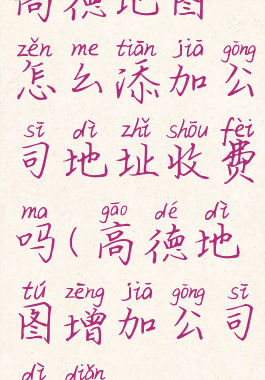 高德地图
zěn me tiān jiā gōng
怎么添加公
sī dì zhǐ shōu fèi
司地址收费
ma gāo dé dì
吗(高德地
tú zēng jiā gōng sī
图增加公司
dì diǎn